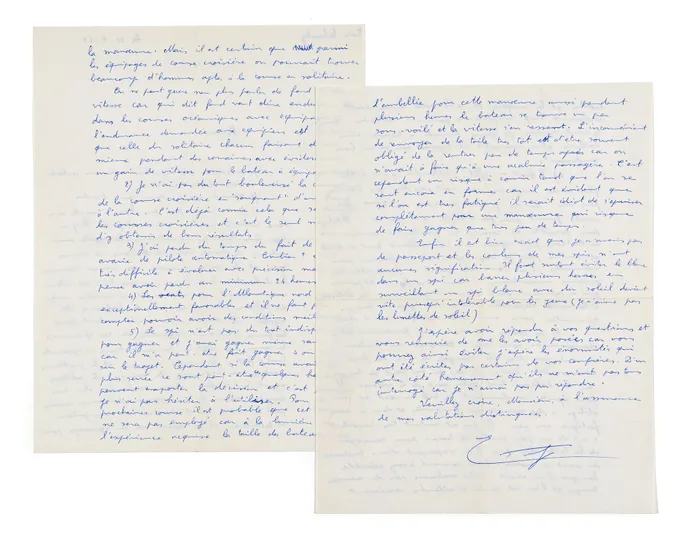 la manœuvre. Mais il est certain que parmi
les équipages de course-croisière on pourrait trouver
beaucoup d'hommes aptes à la course en solitaire.
On ne peut guère non plus parler de fond
vitesse car qui dit fond veut dire endu
dans les courses océaniques avec équipa
l'endurance demandée aux équipiers est
que celle du solitaire chacun faisant d
mieux pendant des semaines avec
un gain de vitesse pour le bateau à équip
2) Je n'ai pas du tout bouleversé la c
de la course croisière en "soufrant" d'un
à l'autre. C'est déjà comme cela que se
les courses croisières et c'est le seul m
d'y obtenir de bons résultats.
3) J'ai perdu du temps du fait de
avarie de pilote automatique. Combien ?
très difficile à évaluer avec précision mais
pense avoir perdu au minimum 24 heures
4) Les vents pour l'Atlantique nord
exceptionnellement favorables et il ne faut p
compter pouvoir avoir des conditions meil
5) Le spi n'est pas du tout indisp
pour gagner et j'aurai gagné même san
car il m'a peut-être fait gagner
sur le trajet. Cependant si la course avai
plus serrée ce sont peut-être quelques he
peuvent emporter la décision et c'est
je n'ai pas hésiter à l'utiliser. Pour
prochaines course il est probable que cet
ne sera pas employé car à la lumière
l'expérience acquise la taille des bateau
d'embellie pour cette manœuvre aussi pendant
plusieurs heures le bateau se trouve un peu
sous-voilé et la vitesse s'en ressent. L'inconvénient
de renvoyer de la toile très tôt est d'être souvent
obligé de la rentrer peu de temps après car on
n'avait à faire qu'à une accalmie passagère. C'est
cependant un risque à courir tant que l'on se
sent encore en forme car il est évident que
si l'on est très fatigué il serait idiot de s'épuiser
complètement pour une manœuvre qui risque
de faire gagner que très peu de temps.
Enfin il est bien exact que je n'avais pas
de passeport et les couleurs de mes spis n'ont
aucunes signification. Il faut surtout éviter le blanc
dans un spi car barrer plusieurs heures en
surveillant un spi blanc avec du soleil devient
vite presqu'intolérable pour les yeux (je n'aime pas
les lunettes de soleil)
J'espère avoir répondu à vos questions et
vous remercie de me les avoir posées car vous
pourrez ainsi éviter j'espère les énormités qui
ont été écrites par certains de vos confrères. D'un
autre côté heureusement qu'ils ne m'ont pas tous
interrogé car je n'aurais pas pu répondre.
Veuillez croire, Monsieur, à l'assurance
de mes salutations distinguées.